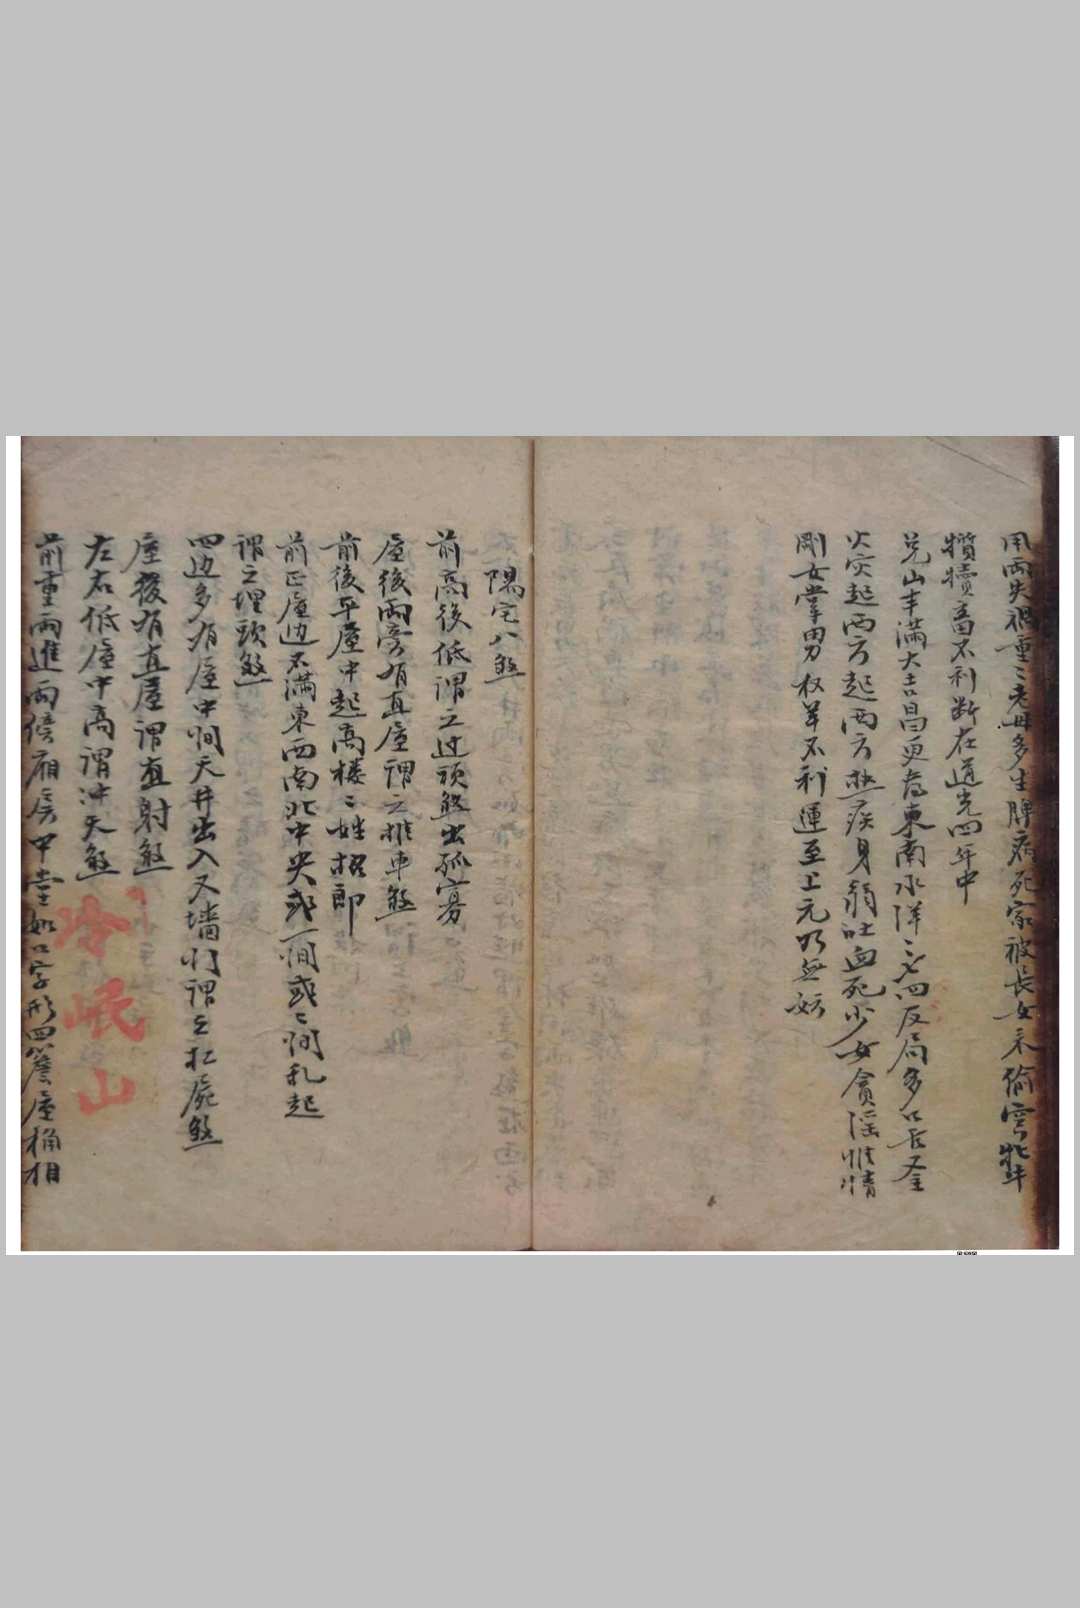 用兩失禍重重老母多生脾病死家被長女來偷
犢畜不利斷在道光四年中
兌山丰滿大吉昌更為東南水洋洋必四反局多口舌
火灾起西方起西方疾身弱吐血死少女貪淫
剛女掌男权羊不利運至上元乃無妨
陽宅八煞
前高後低謂之过頭煞出孤寡
屋後兩旁有直屋謂之推車煞
前後平屋中起高楼楼姓招郎
前正屋边不滿東西南北中央或一间或二间乱起
謂之埋頭煞
四边多有屋中间天井出入又墙门謂之扛屍煞
屋後有直屋謂直射煞
左右低屋中高謂冲天煞
前重兩進兩傍廂房中堂如口字形四簷屋桷相
冷岷山